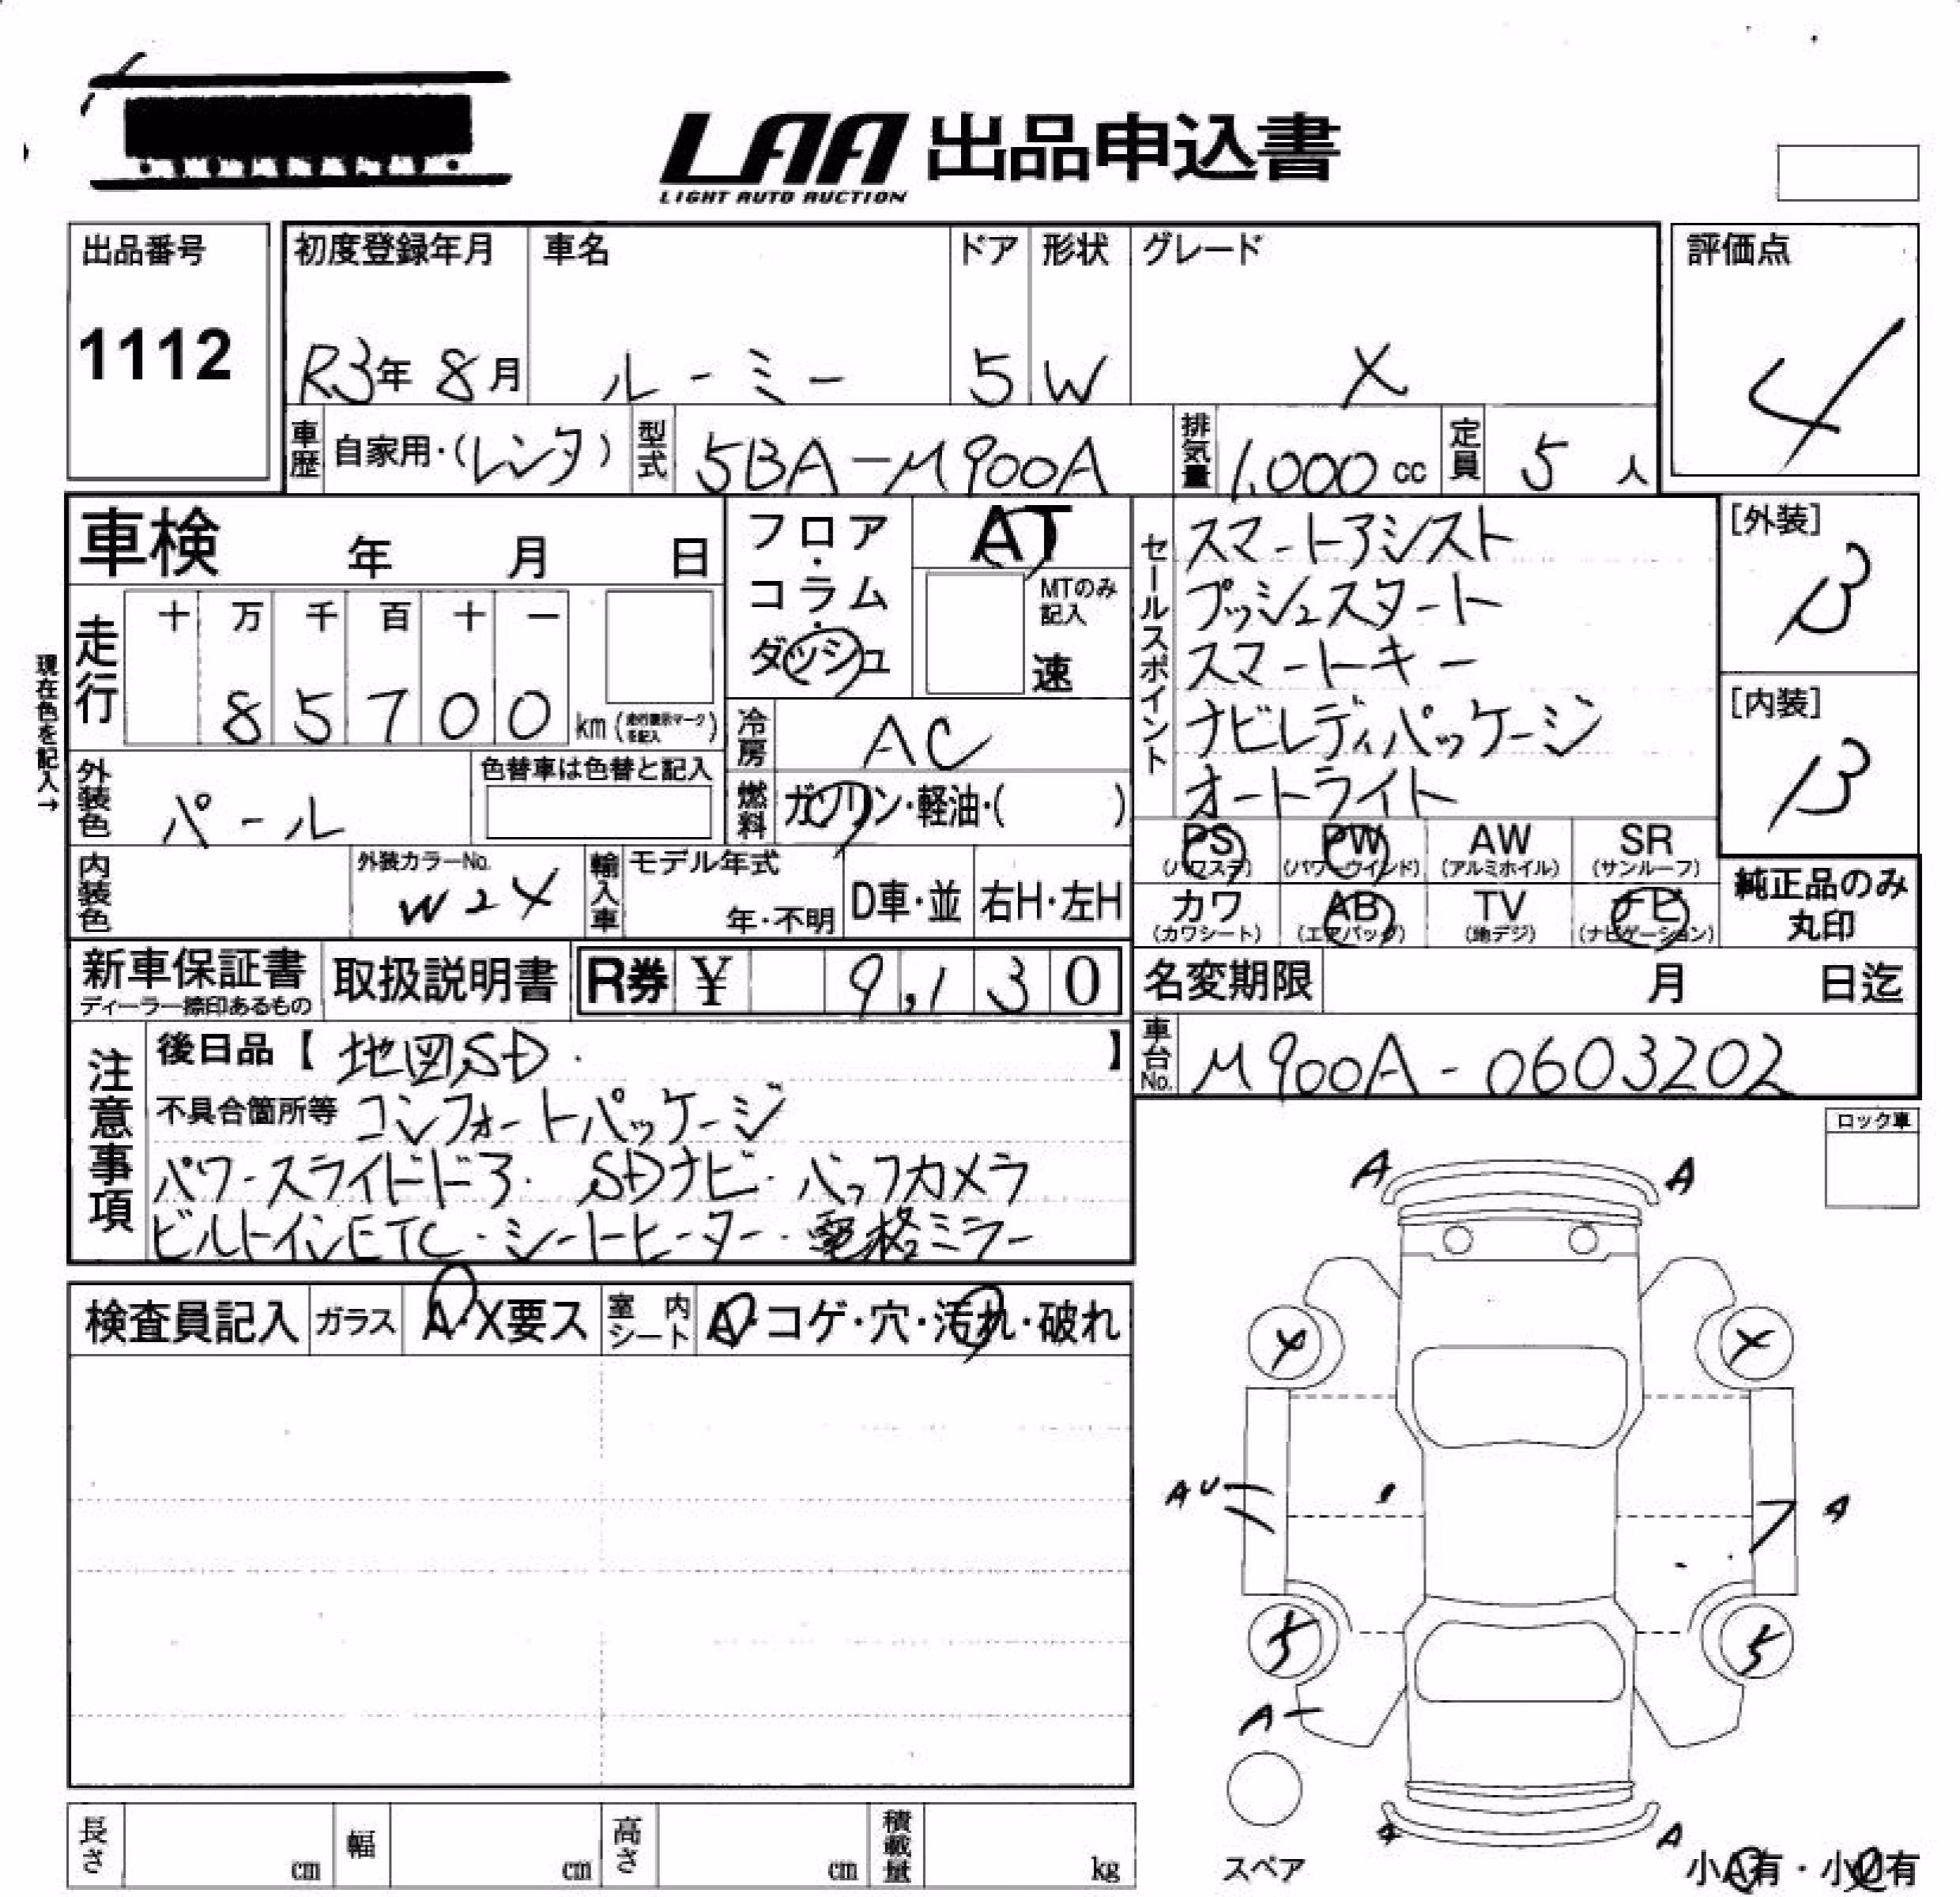 LAA 出品申込書
LIGHT AUTO AUCTION
出品番号
1112
初度登録年月
R3年 8月
車名
ルーミー
ドア
5
形状
W
グレード
X
評価点
4
車歴 自家用・(レンタ)
型式 5BA-M900A
排気量 1,000 cc
定員 5 人
車検 年 月 日
フロア・コラム・ダッシュ
AT
MTのみ記入
速
セールスポイント
スマートアシスト
プッシュスタート
スマートキー
ナビレディパッケージ
オートライト
[外装]
B
[内装]
B
現在色を記入→
走行
十 万 千 百 十 一
8 5 7 0 0 km (走行表示マークを記入)
冷房 AC
外装色 パール
色替車は色替と記入
燃料 ガソリン・軽油・( )
PS (パワステ)
PW (パワーウインド)
AW (アルミホイル)
SR (サンルーフ)
カワ (カワシート)
AB (エアバッグ)
TV (地デジ)
ナビ (ナビゲーション)
純正品のみ丸印
内装色
外装カラーNo.
W24
輸入車
モデル年式
年・不明
D車・並
右H・左H
新車保証書
ディーラー捺印あるもの
取扱説明書
R券 ¥ 9,130
名変期限 月 日迄
車台No. M900A-0603202
注意事項
後日品【 地図SD. 】
不具合箇所等 コンフォートパッケージ
パワースライドドア. SDナビ・バックカメラ
ビルトインETC・シートヒーター・電格ミラー
ロック車
A A
検査員記入
ガラス A・X要ス
室内シート A・コゲ・穴・汚れ・破れ
4 4
AU A
5 5
A
スペア
A A
小A有・小U有
長さ cm
幅 cm
高さ cm
積載量 kg